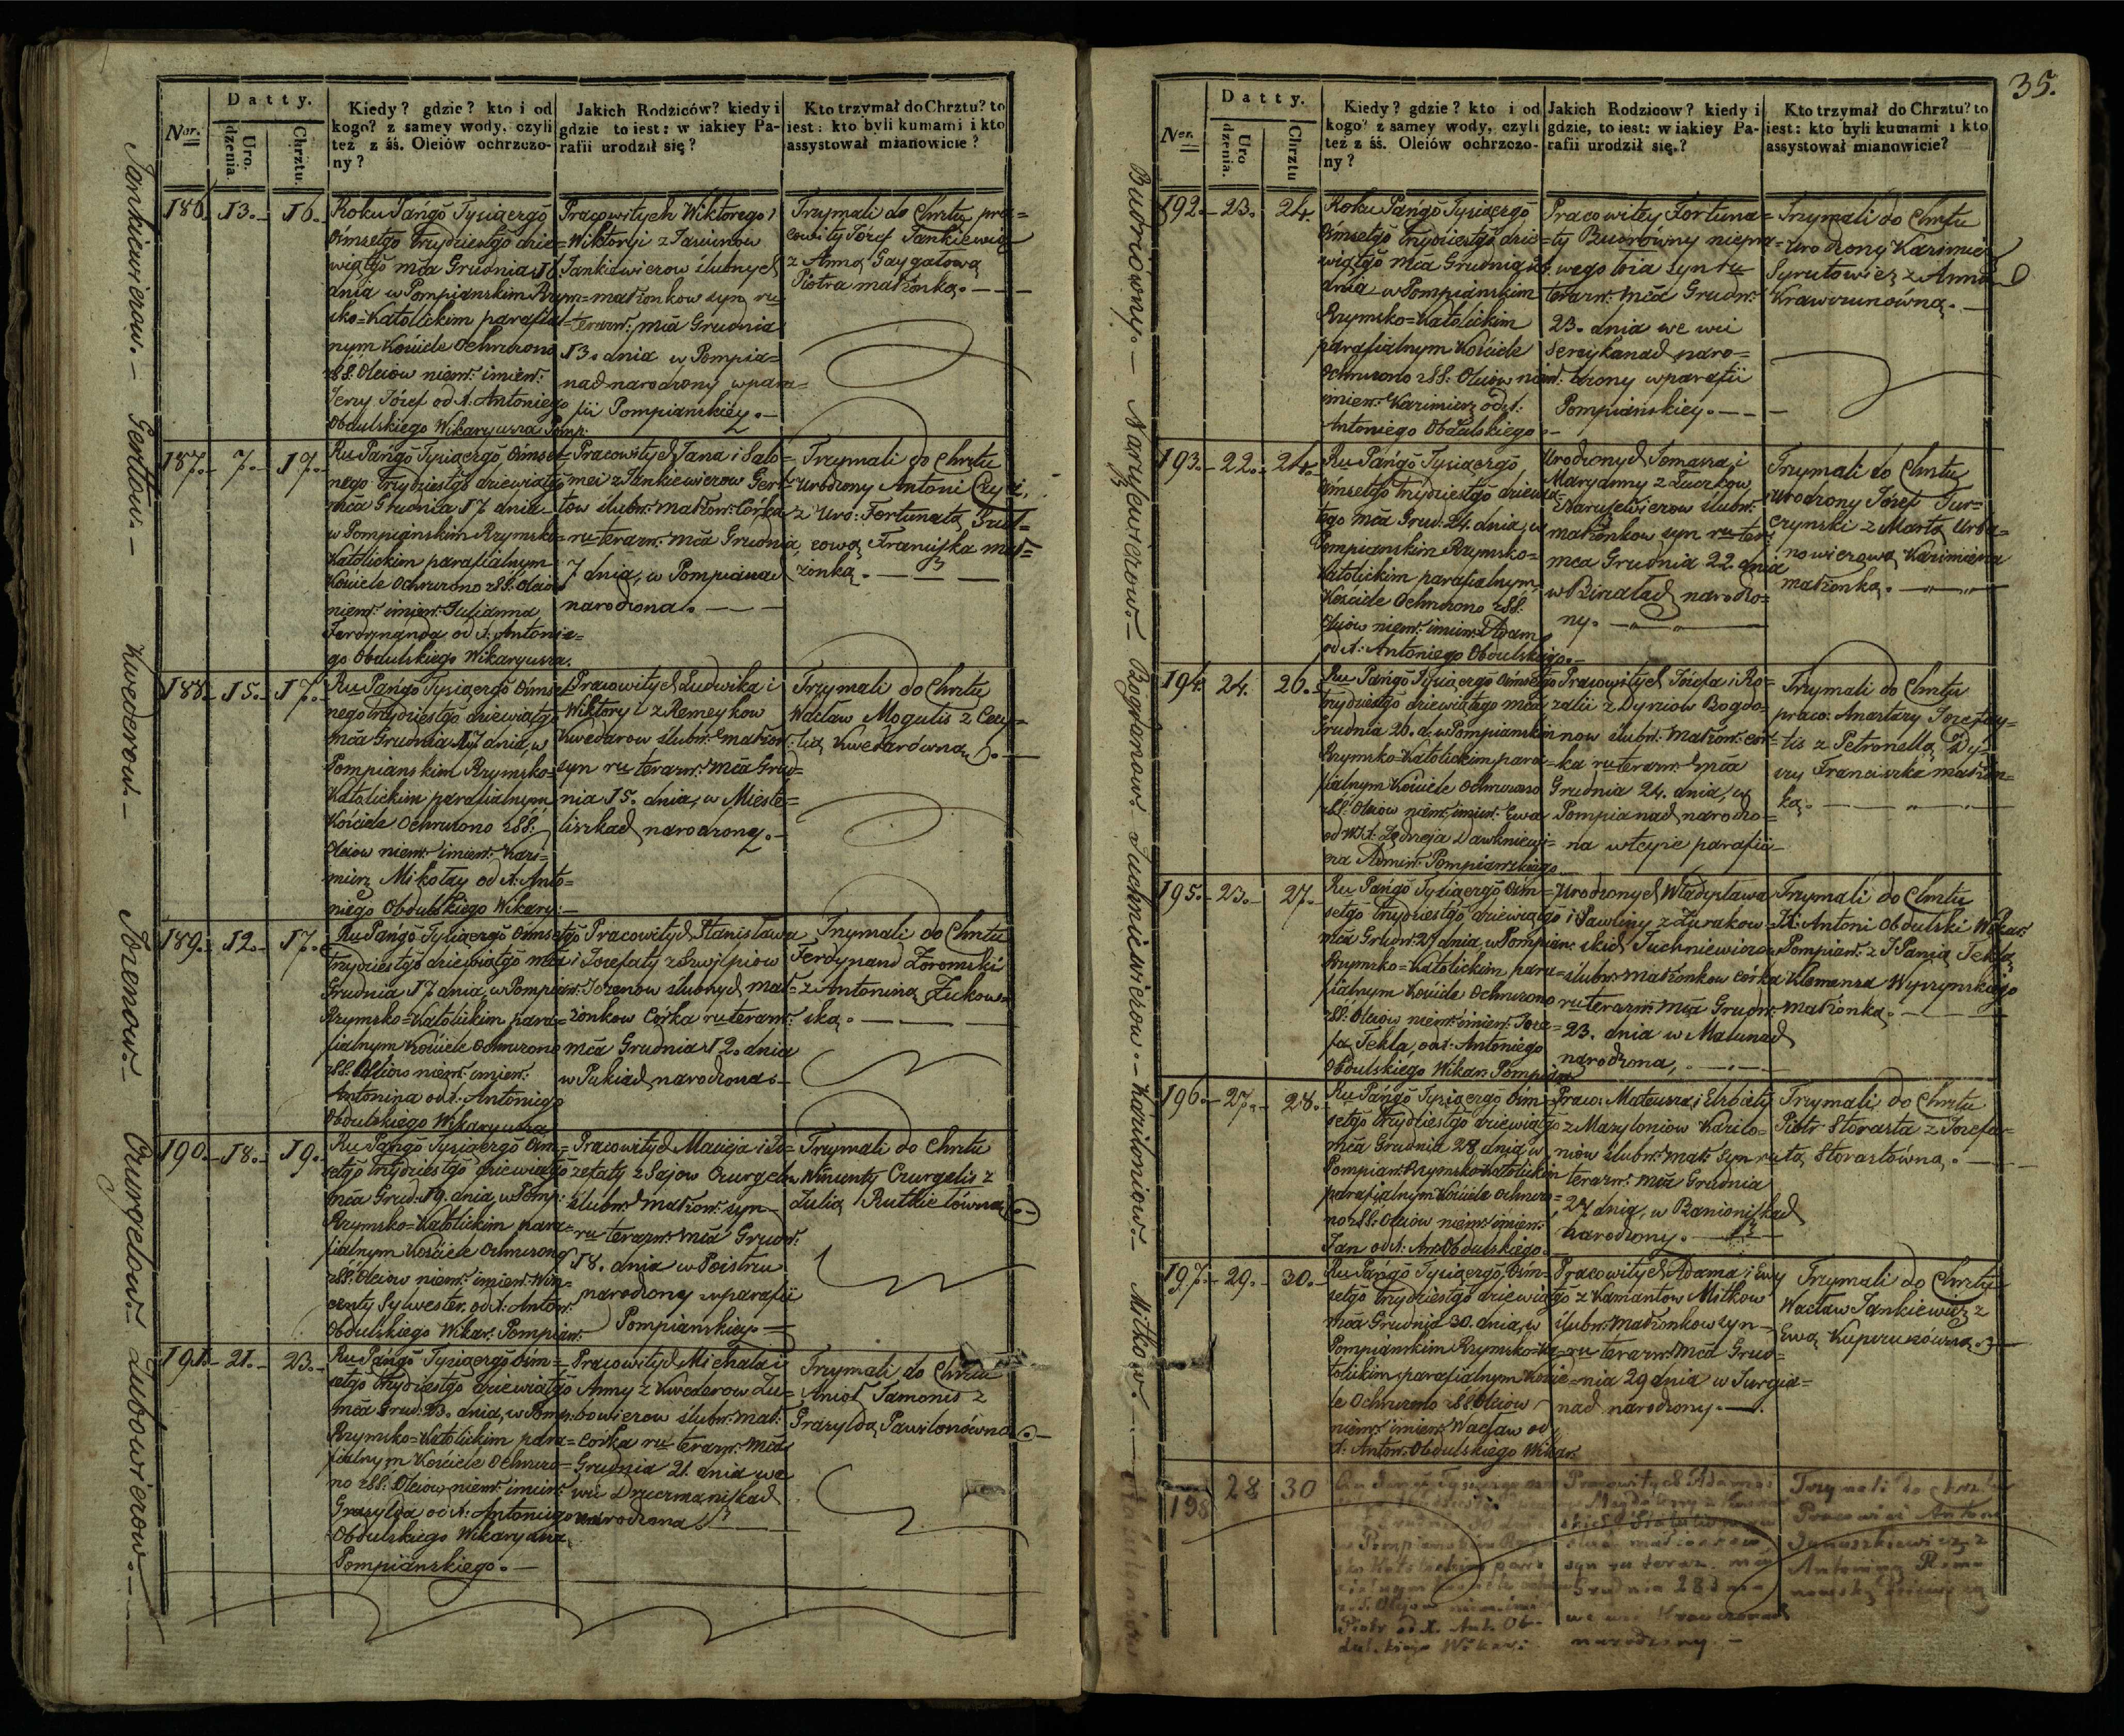 35.
Nor.
Datty.
Urodzenia.
Chrztu.
Kiedy? gdzie? kto i od
kogo? z samey wody, czyli
też z śś. Oleiów ochrzczo-
ny?
Jakich Rodziców? kiedy i
gdzie to iest: w iakiey Pa-
rafii urodził się?
Kto trzymał do Chrztu? to
iest: kto byli kumami i kto
assystował mianowicie?
Jankiewiczow.
186. 13. 16.
Roku Pańgō Tysiącgō
Ośmsetgō trzydziestgō dzie=
wiątgō mca Grudnia 16.
dnia w Pompianskim Rzym=
sko=Katolickim parafial=
nym Kościele Ochrzczono
z SS: Oleiow niem: imien:
Jerzy Józef od X. Antoniego
Obdulskiego Wikaryusza Pomp:
Pracowitych Wiktorego i
Wiktoryi z Jasiunow
Jankiewiczow ślubnych
małżonkow syn ru
terazn: mca Grudnia
13. dnia w Pompia=
nach narodzony w para=
fii Pompianskiey.
Trzymali do Chrztu pra=
cowity Józef Jankiewicz
z Anną Gaygalową
Piotra małżonką.
Gertow.
187. 7. 17.
Ru Pańgō Tysiącgō Ośmset=
nego trzydziestgō dziewiątgō
mca Grudnia 17 dnia
w Pompianskim Rzymsko=
Katolickim parafialnym
Kościele Ochrzczono z SS: Oleiow
niem: imien: Julianna
Ferdynanda od X. Antonie=
go Obdulskiego Wikaryusza.
Pracowitych Jana i Salo=
mei z Jankiewiczow Ger=
tow ślubn: małżon: Córka
ru terazn: mca Grudnia
7 dnia, w Pompianach
narodzona.
Trzymali do Chrztu
Urodzony Antoni
z Uro: Fortunatą
cową Franciszka mał=
żonką.
Kwederow.
188. 15. 17.
Ru Pańgō Tysiącgō Ośmset=
nego trzydziestgō dziewiątgō
mca Grudnia 17 dnia, w
Pompianskim Rzymsko=
Katolickim parafialnym
Kościele Ochrzczono z SS:
Oleiow niem: imien: Kazi=
mierz Mikołay od X. Anto=
niego Obdulskiego Wikary:
Pracowitych Ludwika i
Wiktoryi z Remeykow
Kwedarow ślubn: małżon:
syn ru terazn: mca Grud=
nia 15. dnia, w Mieste=
liszkach narodzony.
Trzymali do Chrztu
Wacław Mogulis z Cecy=
lią Kwedarówną.
Jozenow.
189. 12. 17.
Ru Pańgō Tysiącgō Ośmsetgō
trzydziestgō dziewiątgō mca
Grudnia 17 dnia, w Pompian:
Rzymsko=Katolickim para=
fialnym Kościele Ochrzczono
z SS. Oleiow niem: imien:
Antonina od X. Antoniego
Obdulskiego Wikaryusza
Pracowitych Stanisława
i Jozefaty z
Jozenow ślubnych mał=
żonkow Córka ru terazn:
mca Grudnia 12. dnia
w Pukiach narodzona.
Trzymali do Chrztu
Ferdynand Żoromski
z Antoniną Żukow=
ską.
Czurgelow.
190. 18. 19.
Ru Pańgō Tysiącgō Ośm=
setgō trzydziestgō dziewiątgō
mca Grud: 19. dnia, w Pomp:
Rzymsko=Katolickim para=
fialnym Kościele Ochrzczono
z SS: Oleiow niem: imien: Win=
centy Sylwester, od X. Anton:
Obdulskiego Wikar: Pompian:
Pracowitych Macieja i Jo=
zefaty z Sajow Czurgelow
ślubn: małżon: syn
ru terazn: mca Grudn:
18. dnia w Poistru
narodzony w parafii
Pompianskiey.
Trzymali do Chrztu
Wincenty Czurgelis z
Julią Rutkielówną.
Lubowiczow.
191. 21. 23.
Ru Pańgō Tysiącgō Ośm=
setgō trzydziestgō dziewiątgō
mca Grud: 23. dnia, w Pomp:
Rzymsko=Katolickim para=
fialnym Kościele Ochrzczo=
no z SS: Oleiow, niem: imien:
Grasylda od X: Antoniego
Obdulskiego Wikaryusza
Pompianskiego.
Pracowitych Michała i
Anny z Kwederow Lu=
bowiczow ślubn: mał:
corka ru terazn: mca
Grudnia 21. dnia we
wsi Druczmaniszkach
narodzona
Trzymali do Chrztu
Anioł Tamonis z
Grazyldą Pawilonówną.
Nor.
Datty.
Urodzenia.
Chrztu
Kiedy? gdzie? kto i od
kogo? z samey wody, czyli
też z śś. Oleiów ochrzczo-
ny?
Jakich Rodzicow? kiedy i
gdzie, to iest: w iakiey Pa-
rafii urodził się.?
Kto trzymał do Chrztu? to
iest: kto byli kumami i kto
assystował mianowicie?
Budrówny.
192. 23. 24.
Roku Pańgō Tysiącgō
Ośmsetgō trzydziestgō dzie=
wiątgō mca Grudnia 24.
dnia w Pompianskim
Rzymsko=Katolickim
parafialnym Kościele
Ochrzczono z SS: Oleiow niem:
imien: Kazimierz od X:
Antoniego Obdulskiego
Pracowitey Fortuna=
ty Budrówny niepra=
wego łoża syn ru
terazn: mca Grudn:
23. dnia we wsi
Serzykanach naro=
dzony w parafii
Pompianskiey.
Trzymali do Chrztu
Urodzony Kazimierz
Syrutowicz z Anną
Krawczunówną.
Naruszewiczow.
193. 22. 24.
Ru Pańgō Tysiącgō
Ośmsetgō trzydziestgō dziewią=
tego mca Grud: 24. dnia, w
Pompianskim Rzymsko=
Katolickim parafialnym
Kościele Ochrzczono z SS:
Oleiow niem: imien: Adam
od X: Antoniego Obdulskiego.
Urodzonych Tomasza, i
Maryanny z Zuczkow
Naruszewiczow ślubn:
małżonkow syn ru ter:
mca Grudnia 22. dnia
w Birżałach narodzo=
ny.
Trzymali do Chrztu
Urodzony Józef Tur=
czynski z Martą Urba=
nowiczową Kazimierza
małżonką.
Bogdanow.
194. 24. 26.
Ru Pańgō Tysiącgō Ośmsetgō
trzydziestgō dziewiątego mca
Grudnia 26. d: w Pompianskim
Rzymsko=Katolickim para=
fialnym Kościele Ochrzczono
z SS: Oleiow niem: imien: Ewa
od W. X: Jędrzeja Dawkniewi=
cza Admin: Pompianskiego
Pracowitych Józefa i Ro=
zalii z Dyniow Bogda=
now ślubn: małżon: cor=
ka ru terazn: mca
Grudnia 24. dnia, w
Pompianach narodzo=
na w teyże parafii
Trzymali do Chrztu
praco: Anastazy Jozefay=
tis z Petronellą
Franciszka małżon=
ką.
Juchniewiczow.
195. 23. 27.
Ru Pańgō Tysiącgō Ośm=
setgō trzydziestgō dziewiątgō
mca Grudn: 27 dnia, w Pompian:
Rzymsko=Katolickim para=
fialnym Kościele Ochrzczono
z SS: Oleiow niem: imien: Joze=
fa Tekla, od X: Antoniego
Obdulskiego Wikar: Pompian:
Urodzonych Władysława
i Pawliny z Żurakow=
skich Juchniewiczow
ślubn: małżonkow corka
ru terazn: mca Grudn:
23. dnia w Matunach
narodzona,
Trzymali do Chrztu
JX: Antoni Obdulski Wikar:
Pompian: z JPanią Teklą
Klemensa Wyszynskiego
małżonką.
Kazilioniow.
196. 27. 28.
Ru Pańgō Tysiącgō Ośm=
setgō trzydziestgō dziewiątgō
mca Grudnia 28, dnia, w
Pompian: Rzymsko=Katolickim
parafialnym Kościele Ochrzczo=
no z SS: Oleiow niem: imien:
Jan od X: Ant: Obdulskiego.
Praco: Mateusza, i Elzbiety
z Mazyloniow Kazilo=
niow ślubn: mał: syn ru
terazn: mca Grudnia
27 dnia, w Banioniszkach
narodzony.
Trzymali do Chrztu
Piotr Storasta z Jozefa=
tą Storastówną.
Mitkow.
197. 29. 30.
Ru Pańgō Tysiącgō Ośm=
setgō trzydziestgō dziewiąt=
gō mca Grudnia 30. dnia, w
Pompianskim Rzymsko=Ka=
tolickim parafialnym Koście=
le Ochrzczono z SS Oleiow
niem: imien: Wacław od
X: Anton: Obdulskiego Wikar:
Pracowitych Adama i Ewy
z Kamantow Mitkow
ślubn: małżonkow syn
ru terazn: mca Grud=
nia 29 dnia w Jurgia=
nach narodzony.
Trzymali do Chrztu
Wacław Jankiewicz z
Ewą Kupczunówną.
198 28 30
Piotr od X. Ant. Ob=
dulskiego Wikar:
Pracowitych Adama i
Magdaleny z
syn ru teraz. mca
Grudnia 28 dnia
we wsi
narodzony.
Trzymali do chrztu
Pracowici Antoni
Januszkiewicz z
Antoniną Roma=
nowską